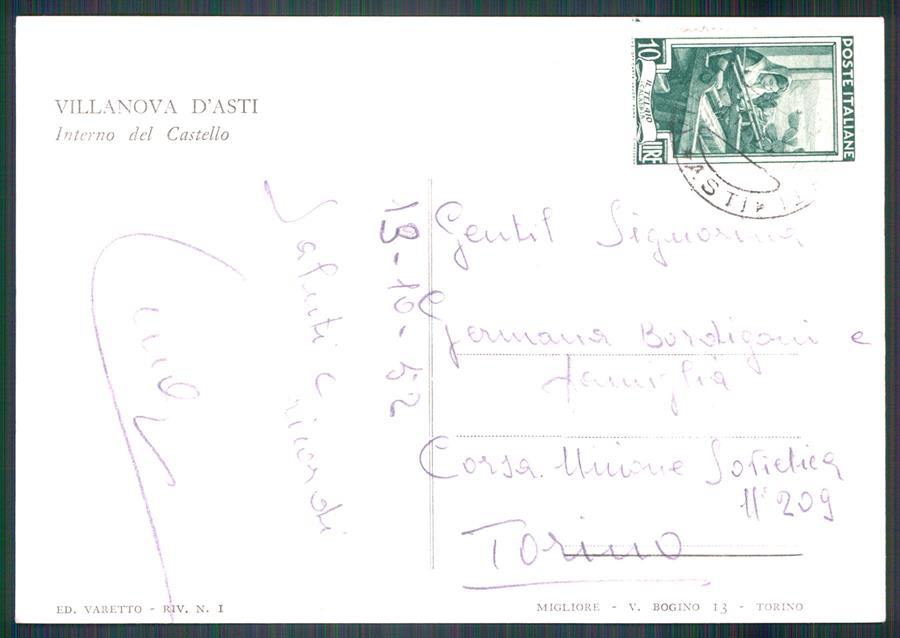 VILLANOVA D'ASTI
Interno del Castello
10
LIRE
IL TELAIO
CALABRIA
POSTE ITALIANE
ASTI
19-10-52
Saluti e ricordi
Gentil Signorina
Germana Bordigoni e
famiglia
Corsa Unione Sovietica
N° 209
Torino
ED. VARETTO - RIV. N. 1
MIGLIORE - V. BOGINO 13 - TORINO